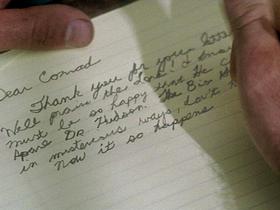 Dear Conrad
Thank you for your lette
Well praise the Lord! I
must be so happy that He
Dr Hudson. The Big
in misterious ways, don't
Now it so happens